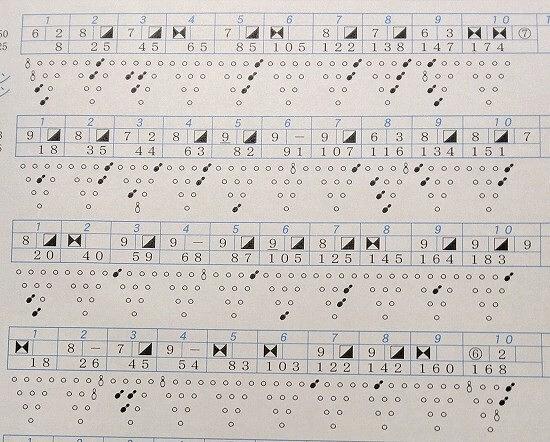 1 2 3 4 5 6 7 8 9 10
6 2 8 ◢ 7 ◢ ⧓ 7 ◢ ⧓ 8 ◢ 7 ◢ 6 3 ⧓ ⧓ ⑦
8 25 45 65 85 105 122 138 147 174
1 2 3 4 5 6 7 8 9 10
9 ◢ 8 ◢ 7 2 8 ◢ 9 ◢ 9 - 9 ◢ 6 3 8 ◢ 8 ◢ 7
18 35 44 63 82 91 107 116 134 151
1 2 3 4 5 6 7 8 9 10
8 ◢ ⧓ 9 ◢ 9 - 9 ◢ 9 ◢ 8 ◢ ⧓ 9 ◢ 9 ◢ 9
20 40 59 68 87 105 125 145 164 183
1 2 3 4 5 6 7 8 9 10
⧓ 8 - 7 ◢ 9 - ⧓ ⧓ 9 ◢ 9 ◢ ⧓ ⑥ 2
18 26 45 54 83 103 122 142 160 168